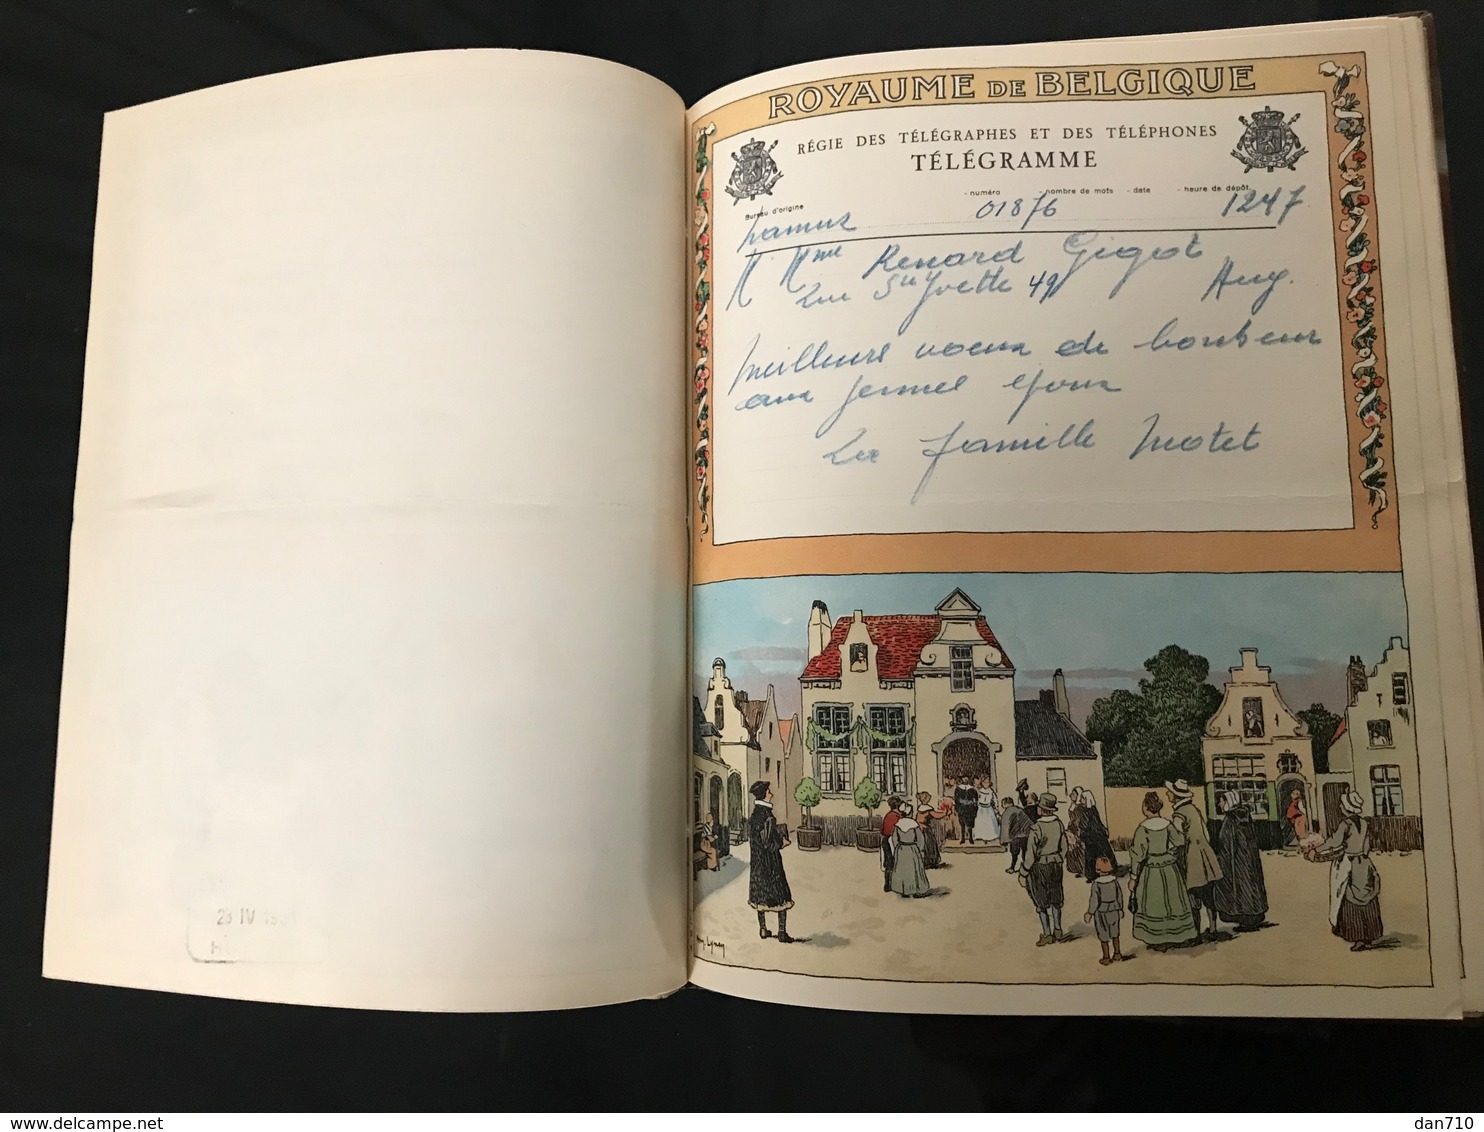 ROYAUME DE BELGIQUE
RÉGIE DES TÉLÉGRAPHES ET DES TÉLÉPHONES
TÉLÉGRAMME
Bureau d'origine - numéro - nombre de mots - date - heure de dépôt.
Namur 01876 1247
M Mme Renard Gigot
Rue Ste Yvette 49 Huy.
Meilleurs voeux de bonheur
aux jeunes époux
La famille Motet
28 IV
© delcampe.net
dan710